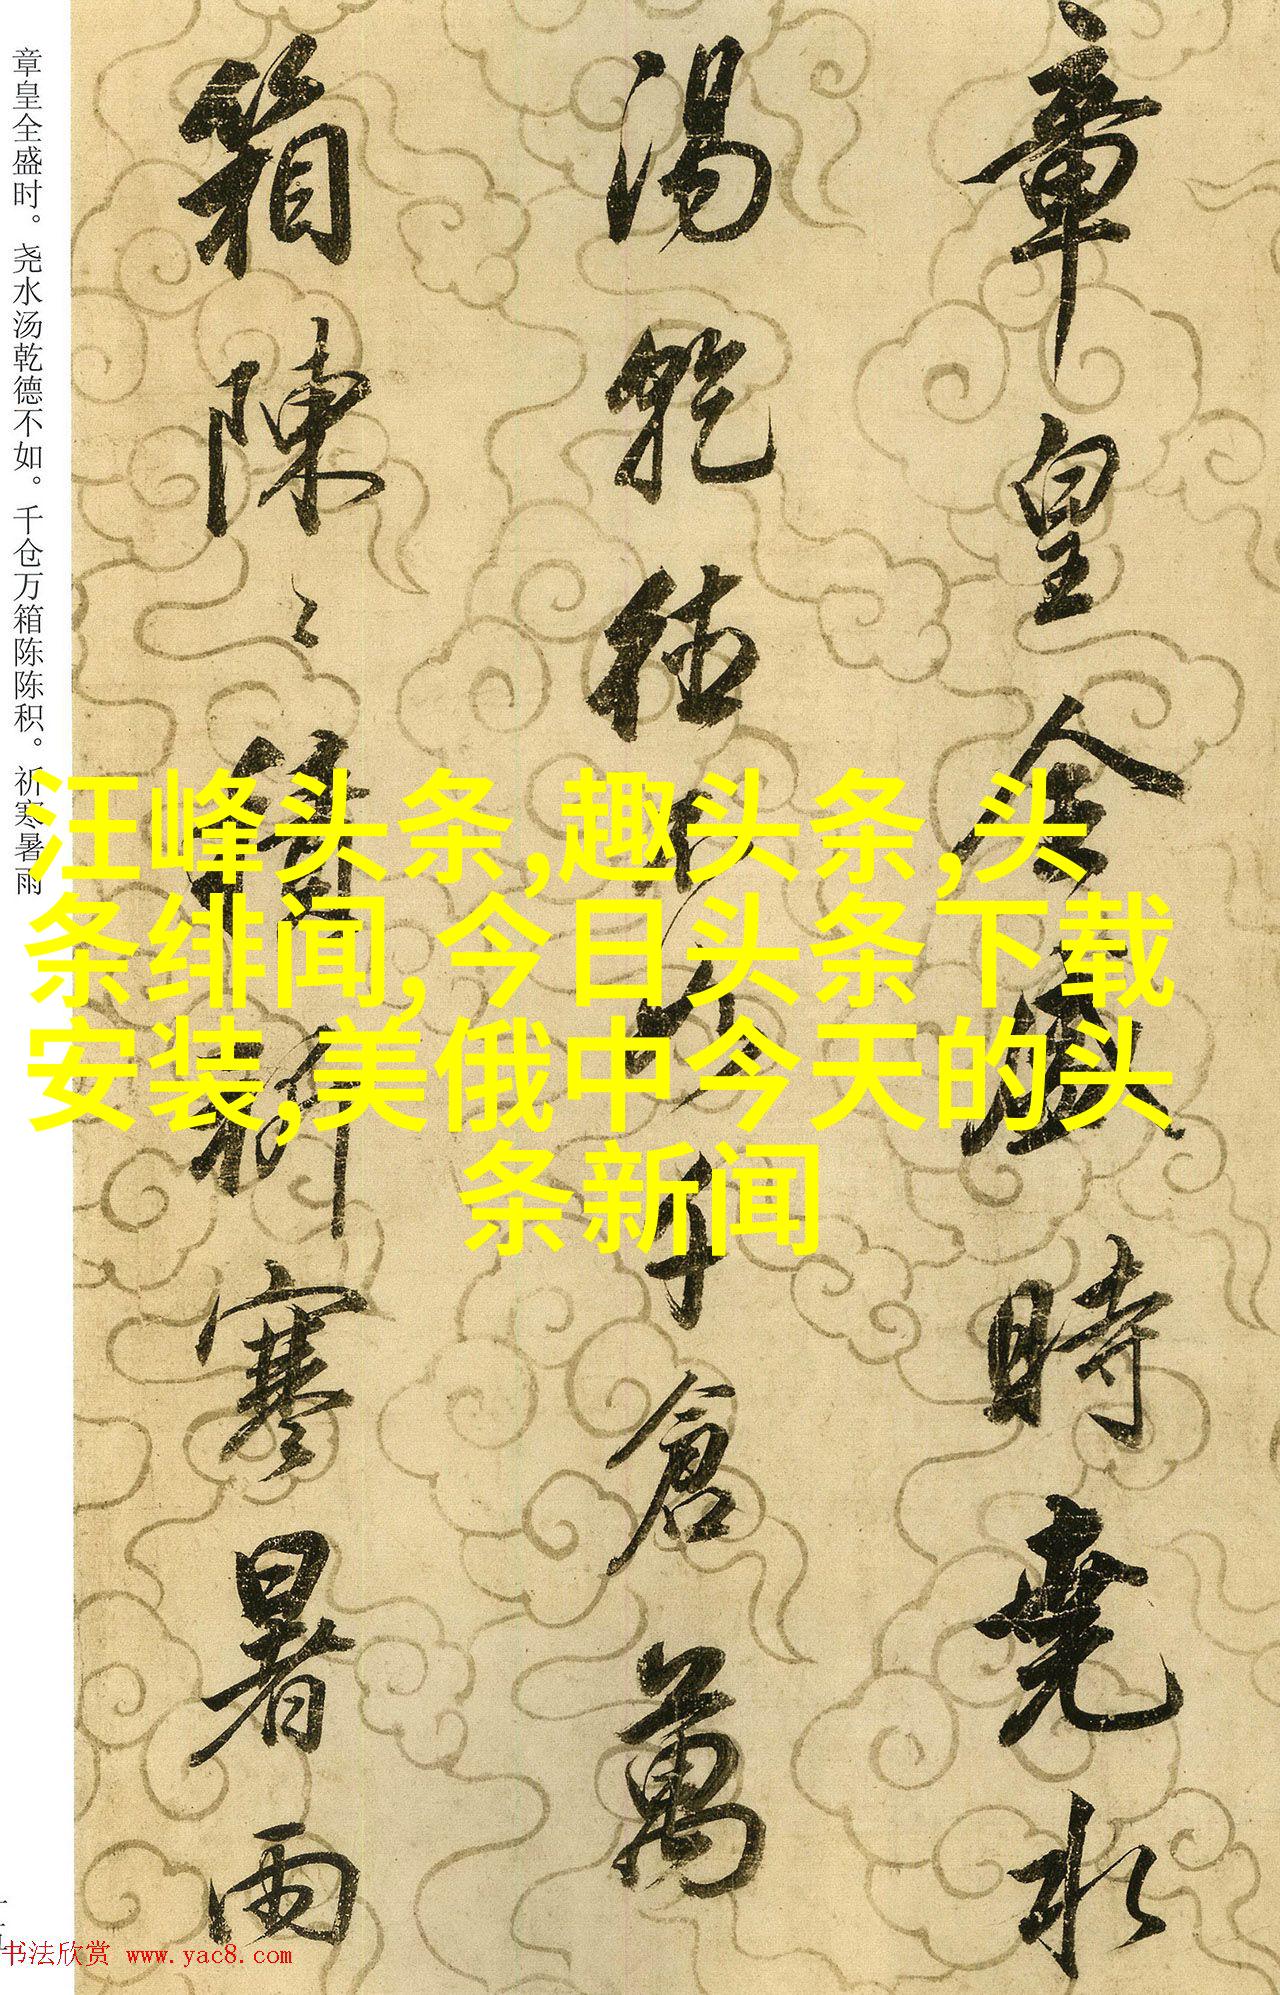 章皇全盛时。尧水汤乾德不如。千仓万箱陈陈积。祈寒暑雨
章皇全盛時堯水
湯乾德不如千倉萬
箱陳〻積祈寒暑雨
汪峰头条,趣头条,头
条绯闻,今日头条下载
安装,美俄中今天的头
条新闻
书法欣赏 www.yac8.com